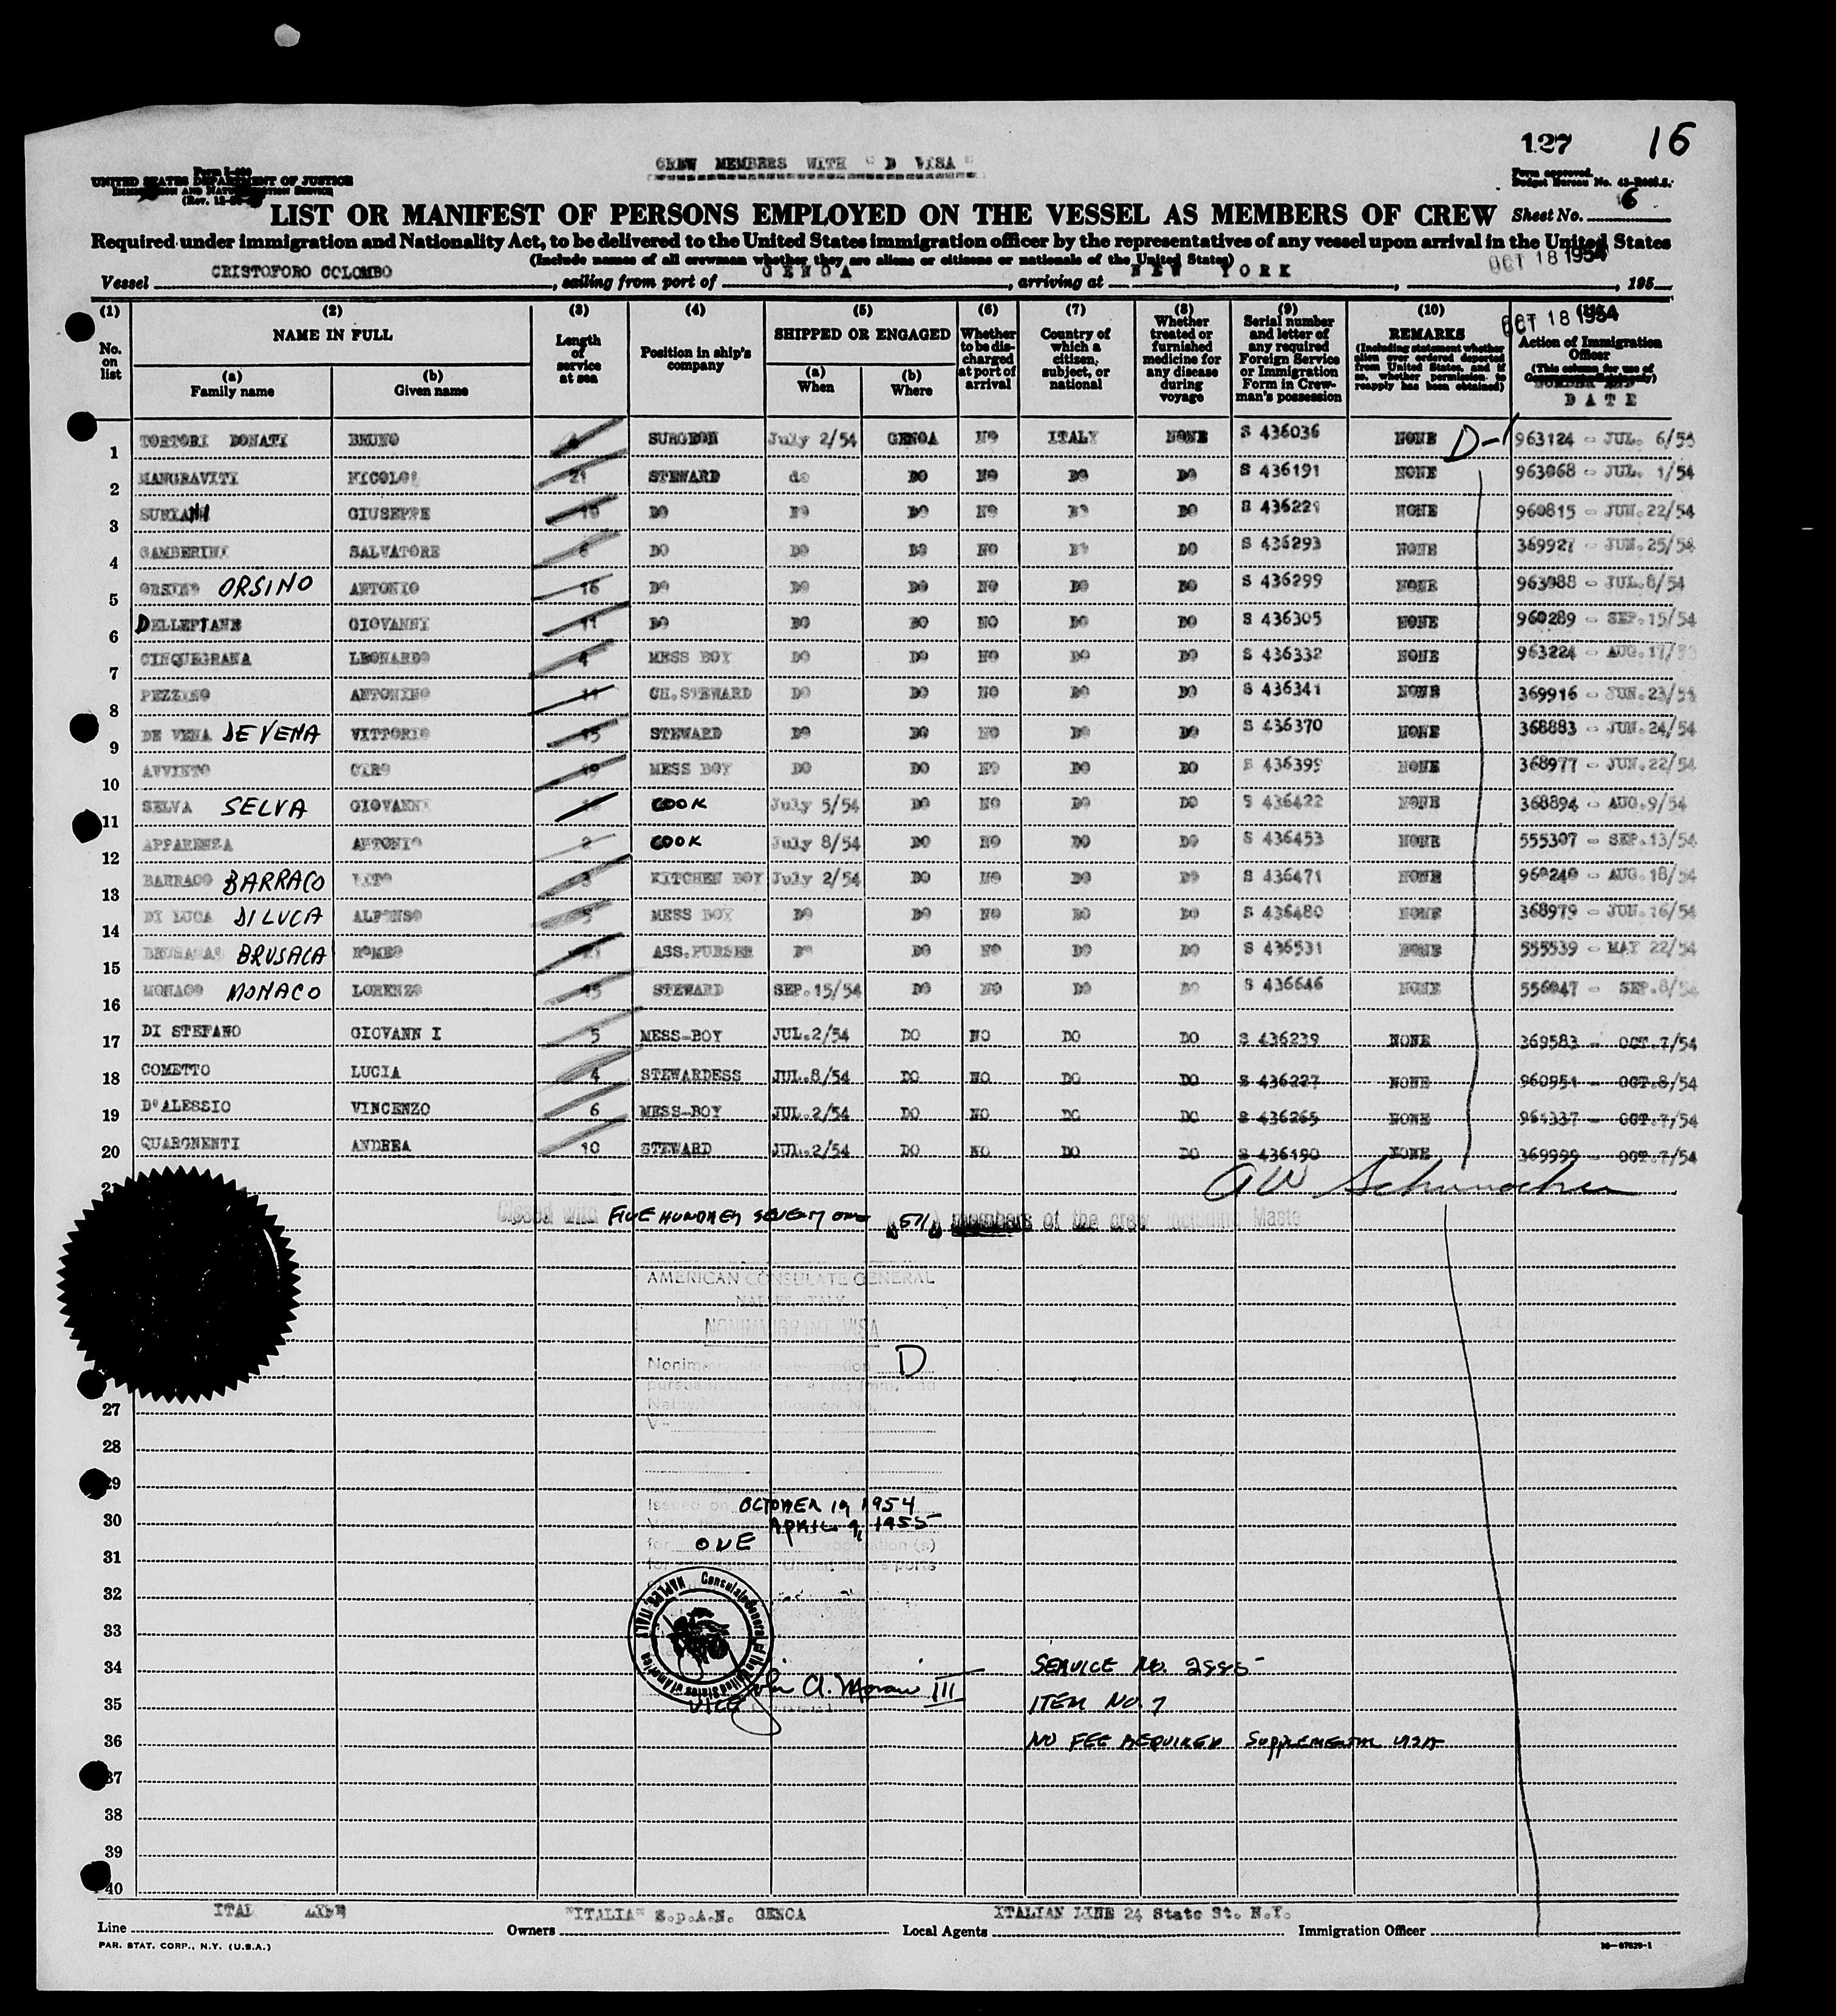 127 16
CREW MEMBERS WITH "D VISA"
UNITED STATES DEPARTMENT OF JUSTICE
Form approved.
Budget Bureau No.
LIST OR MANIFEST OF PERSONS EMPLOYED ON THE VESSEL AS MEMBERS OF CREW Sheet No. 6
Required under immigration and Nationality Act, to be delivered to the United States immigration officer by the representatives of any vessel upon arrival in the United States
(Include names of all crewman whether they are aliens or citizens or nationals of the United States)
OCT 18 1954
Vessel CRISTOFORO COLOMBO, sailing from port of GENOA, arriving at NEW YORK, , 195
(1) (2) (3) (4) (5) (6) (7) (8) (9) (10)
OCT 18 1954
No. on list NAME IN FULL Length of service at sea Position in ship's company SHIPPED OR ENGAGED Whether to be discharged at port of arrival Country of which a citizen, subject, or national Whether treated or furnished medicine for any disease during voyage Serial number and letter of any required Foreign Service or Immigration Form in Crewman's possession REMARKS (Including statement whether alien ever ordered deported from United States, and if so, whether permission to reapply has been obtained) Action of Immigration Officer (This column for use of
(a) Family name (b) Given name (a) When (b) Where
DATE
1 TORTORI DONATI BRUNO SURGEON July 2/54 GENOA NO ITALY NONE S 436036 NONE D-1 963124 - JUL. 6/54
2 MANGRAVITI NICOLO' 21 STEWARD do DO NO DO DO S 436191 NONE 963068 - JUL. 1/54
3 SURIANI GIUSEPPE DO DO DO NO DO DO S 436221 NONE 960815 - JUN.22/54
4 GAMBERINI SALVATORE 6 DO DO DO NO DO DO S 436293 NONE 369927 - JUN.25/54
5 ORSINO ORSINO ANTONIO 16 DO DO DO NO DO DO S 436299 NONE 963088 - JUL.8/54
6 DELLEPIANE GIOVANNI 11 DO DO DO NO DO DO S 436305 NONE 960289 - SEP.15/54
7 CINQUEGRANA LEONARDO 4 MESS BOY DO DO NO DO DO S 436332 NONE 963224 - AUG.17/54
8 PEZZINO ANTONINO 11 CH.STEWARD DO DO NO DO DO S 436341 NONE 369916 - JUN.23/54
9 DE VENA DE VENA VITTORIO 15 STEWARD DO DO NO DO DO S 436370 NONE 368883 - JUN.24/54
10 AVVINTO CIRO 19 MESS BOY DO DO NO DO DO S 436399 NONE 368977 - JUN.22/54
11 SELVA SELVA GIOVANNI COOK July 5/54 DO NO DO DO S 436422 NONE 368894 - AUG.9/54
12 APPARENZA ANTONIO 2 COOK July 8/54 DO NO DO DO S 436453 NONE 555307 - SEP.13/54
13 BARRACO BARRACO VITO 3 KITCHEN BOY July 2/54 DO NO DO DO S 436471 NONE 960240 - AUG.18/54
14 DI LUCA DI LUCA ALFONSO 5 MESS BOY DO DO NO DO DO S 436480 NONE 368979 - JUN.16/54
15 BRUSACA BRUSACA ROMEO ASS.PURSER DO DO NO DO DO S 436531 NONE 555539 - MAY 22/54
16 MONACO MONACO LORENZO 15 STEWARD SEP.15/54 DO NO DO DO S 436646 NONE 556047 - SEP.8/54
17 DI STEFANO GIOVANN I 5 MESS-BOY JUL.2/54 DO NO DO DO S 436239 NONE 369583 - OCT.7/54
18 COMETTO LUCIA 4 STEWARDESS JUL.8/54 DO NO DO DO S 436227 NONE 960951 - OCT.8/54
19 D'ALESSIO VINCENZO 6 MESS-BOY JUL.2/54 DO NO DO DO S 436265 NONE 961337 - OCT.7/54
20 QUARGNENTI ANDREA 10 STEWARD JUL.2/54 DO NO DO DO S 436190 NONE 369999 - OCT.7/54
Closed with FIVE HUNDRED SEVENTY ONE (571) members of the crew including Maste
AMERICAN CONSULATE GENERAL
NAPLES, ITALY
NONIMMIGRANT VISA
D
27
28
29
Issued on OCTOBER 19, 1954
30 APRIL 9, 1955
for ONE application (s)
31
32
Consulate General of the United States of America NAPLES, ITALY
33
34 SERVICE NO. 2995
III
35 VICE ITEM NO. 7
36 NO FEE REQUIRED SUPPLEMENTAL VISA
37
38
39
40
Line ITAL LINE Owners "ITALIA" S.p.A.N. GENOA Local Agents ITALIAN LINE 24 State St. N.Y. Immigration Officer
PAR. STAT. CORP., N.Y. (U.S.A.)